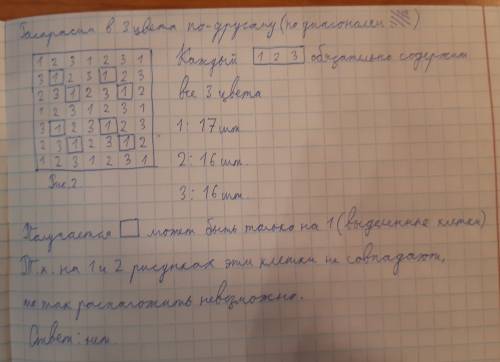 Покрасим в 3 цвета по-другому (по диагоналям)
1 2 3 1 2 3 1
3 1 2 3 1 2 3
2 3 1 2 3 1 2
1 2 3 1 2 3 1
3 1 2 3 1 2 3
2 3 1 2 3 1 2
1 2 3 1 2 3 1
Рис. 2
Каждый 1 2 3 обязательно содержит
все 3 цвета
1: 17 шт.
2: 16 шт.
3: 16 шт.
Получается может быть только на 1 (выделенные клетки)
Т.к. на 1 и 2 рисунках эти клетки не совпадают,
то так расположить невозможно.
Ответ: нет